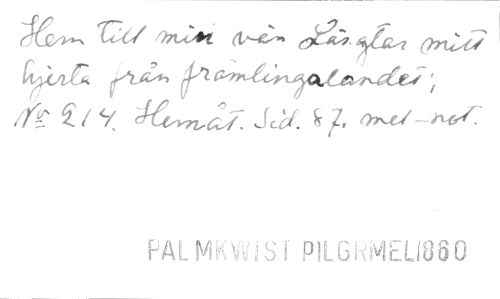 Hem till min vän Längtar mitt
hjerta från främlingalandet;
No 214. Hemåt. Sid. 87. mel-not.
PALMKWIST PILGRMEL1860